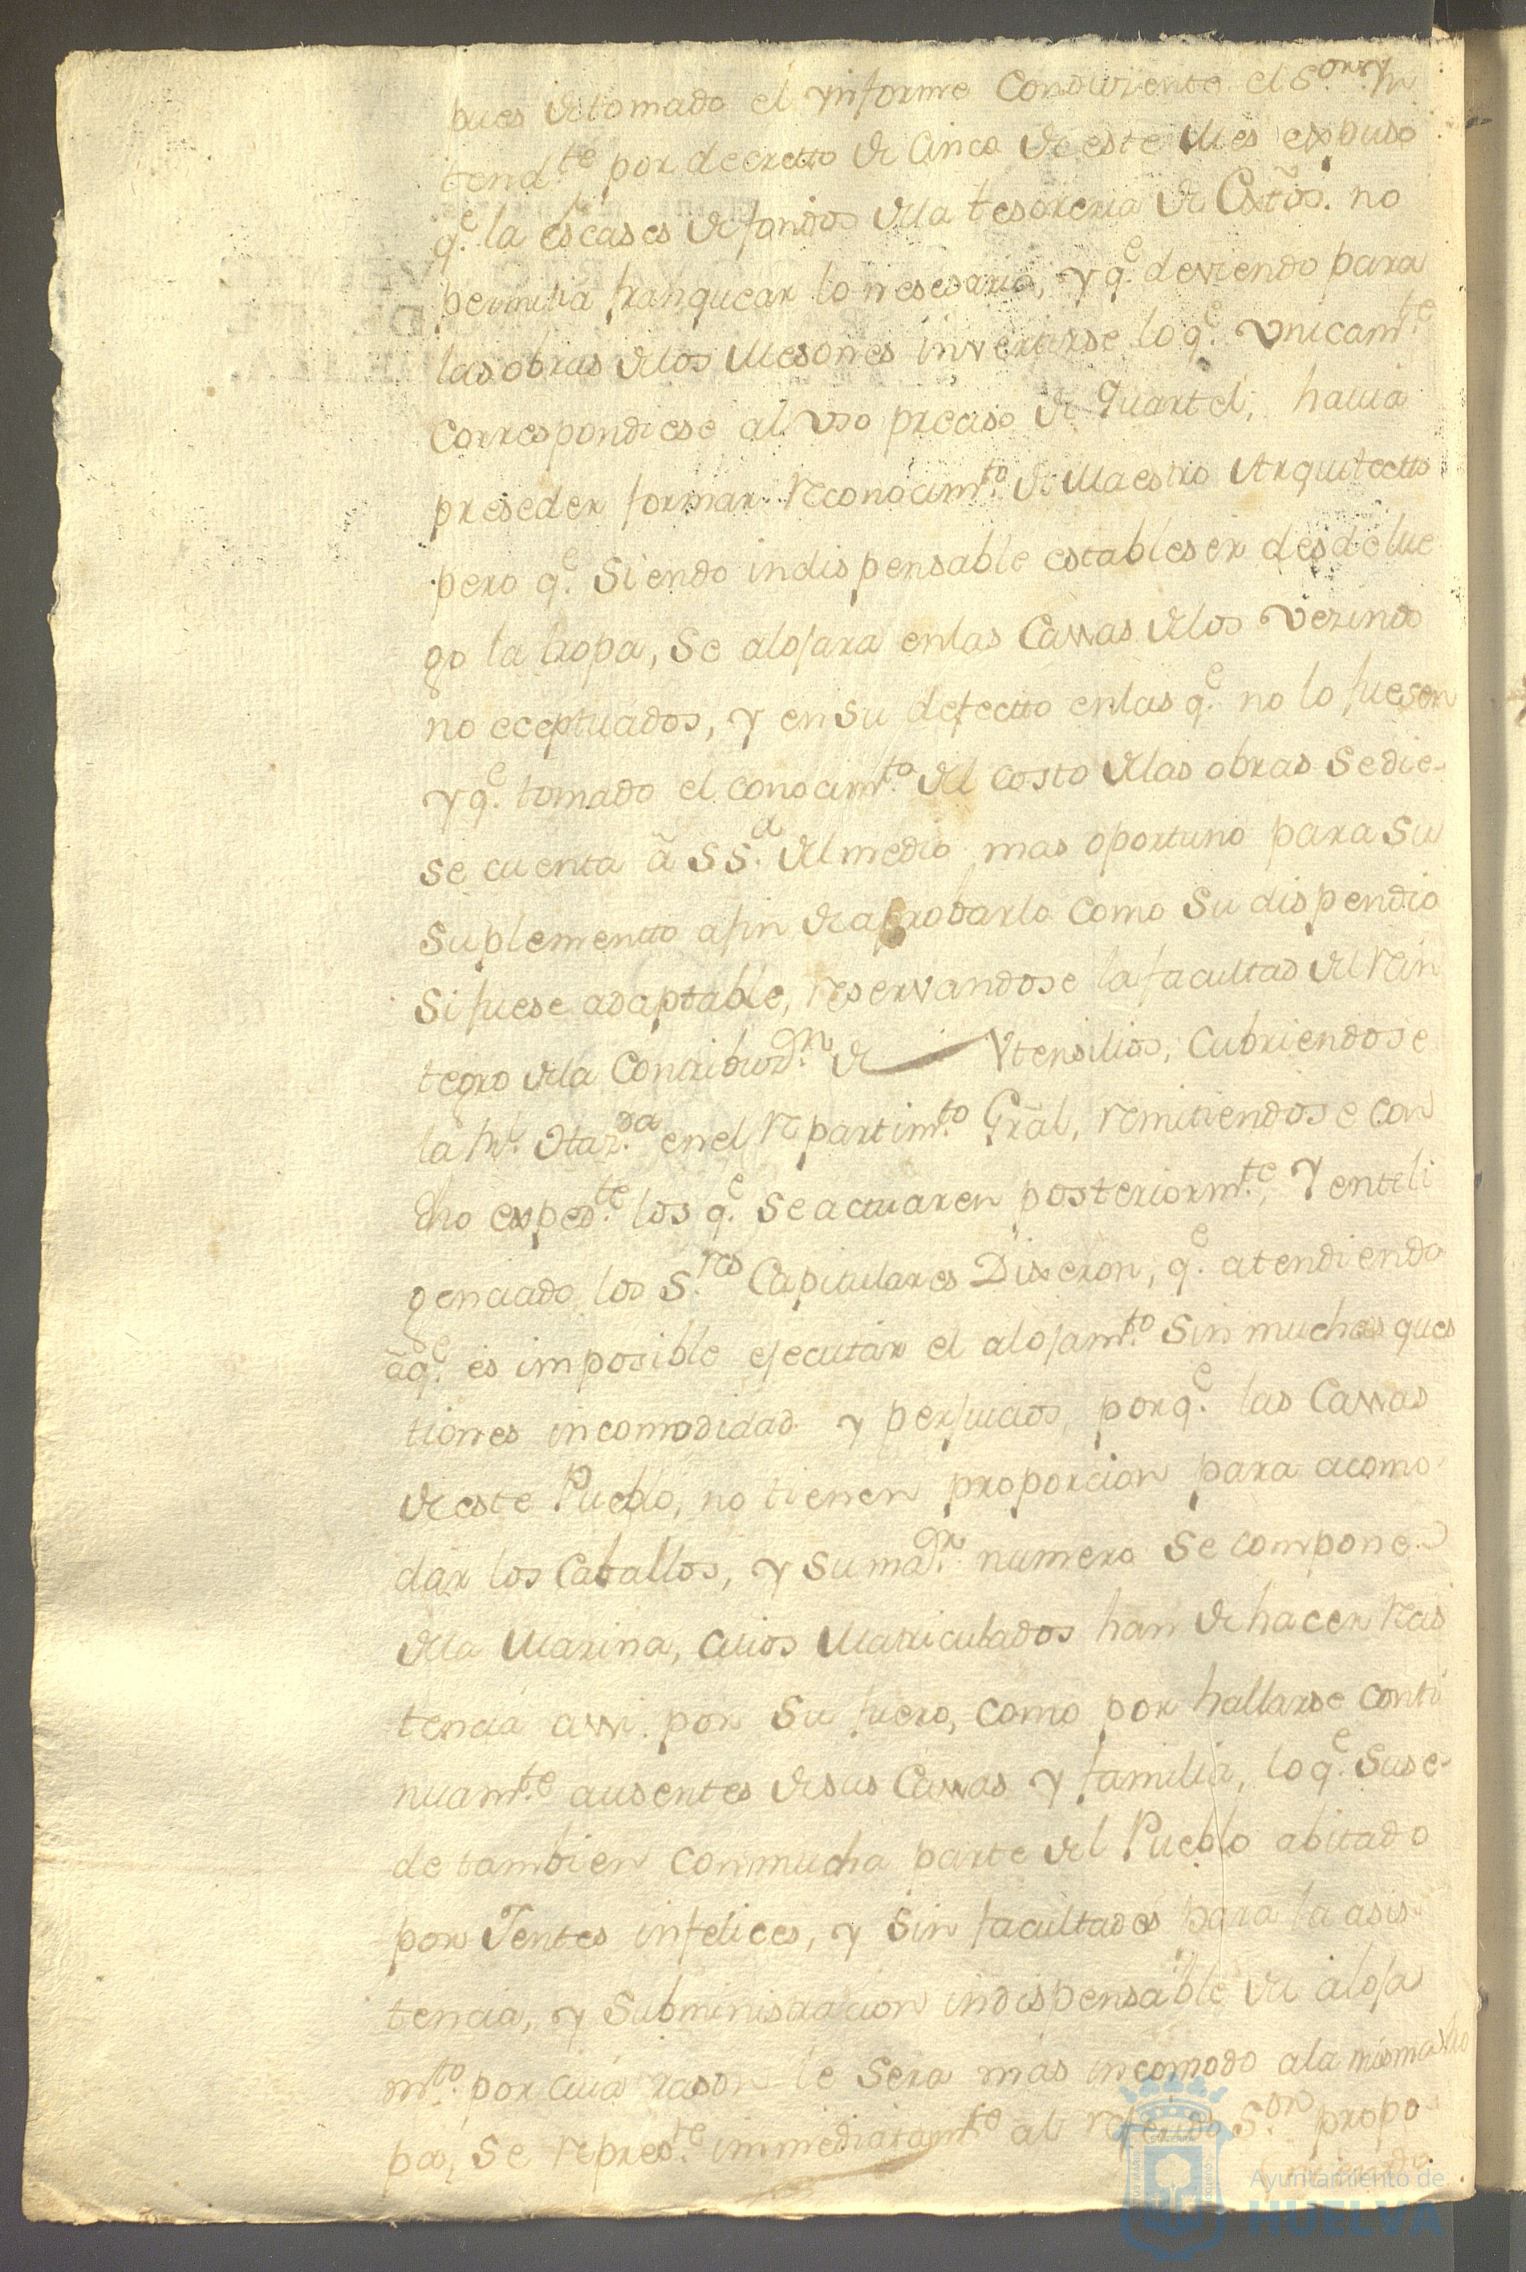 pues de tomado el ynforme Conduzente el S.or Yn
tend.te por decretto de Cinco de este Mes expuso
q.e la escases de fondos dela tesoreria de Extõs. no
permitia franquear lo nesesario, y q.e deviendo para
las obras delos Mesones invertirse lo q.e Vnicam.te
correspondiese al Vso preciso de Quartel, havia
preseder formar reconocim.to de Maestro Arquitectto
pero q.e Siendo indispensable estableser desde lue
go la tropa, Se alojara enlas Cassas delos Vezinos
no eceptuados, y en su defectto enlas q.e no lo fuesen
y q.e tomado el conocim.to del costo delas obras Se die-
se cuenta â SS.a del medio mas oportuno para Su
Suplementto afin de aprobarlo como Su dispendio
Si fuese adaptable, reservandose la facultad del rein
tegro dela Contribuz.on de Vtensilios, Cubriendose
la Rl. Haz.da en el repartim.to Grãl, remitiendose con
dho exped.te los q.e Se actuaren posteriorm.te, Y enteli
genciado los S.res Capitulares Dixeron, q.e atendiendo
âq.e es imposible ejecutar el alojam.to Sin muchas ques
tiones incomodidad y perjuicios, porq.e las Cassas
de este Pueblo, no tienen proporcion para acomo
dar los Caballos, y Su ma.or numero Se compone
dela Marina, cuios Matriculados han de hacer resis
tencia assi por Su fuero, como por hallarse conti
nuam.te ausentes desus Cassas y familia, lo q.e Suse-
de tambien con mucha parte del Pueblo abitado
por Jentes infelices, y Sin facultades para la asis
tencia, y Subministracion indispensable de aloja
m.to por cuia rason le Sera mas incomodo ala misma tro
pa, Se repres.te immediatam.te al referido S.or propo
niendo
Ayuntamiento de
HUELVA